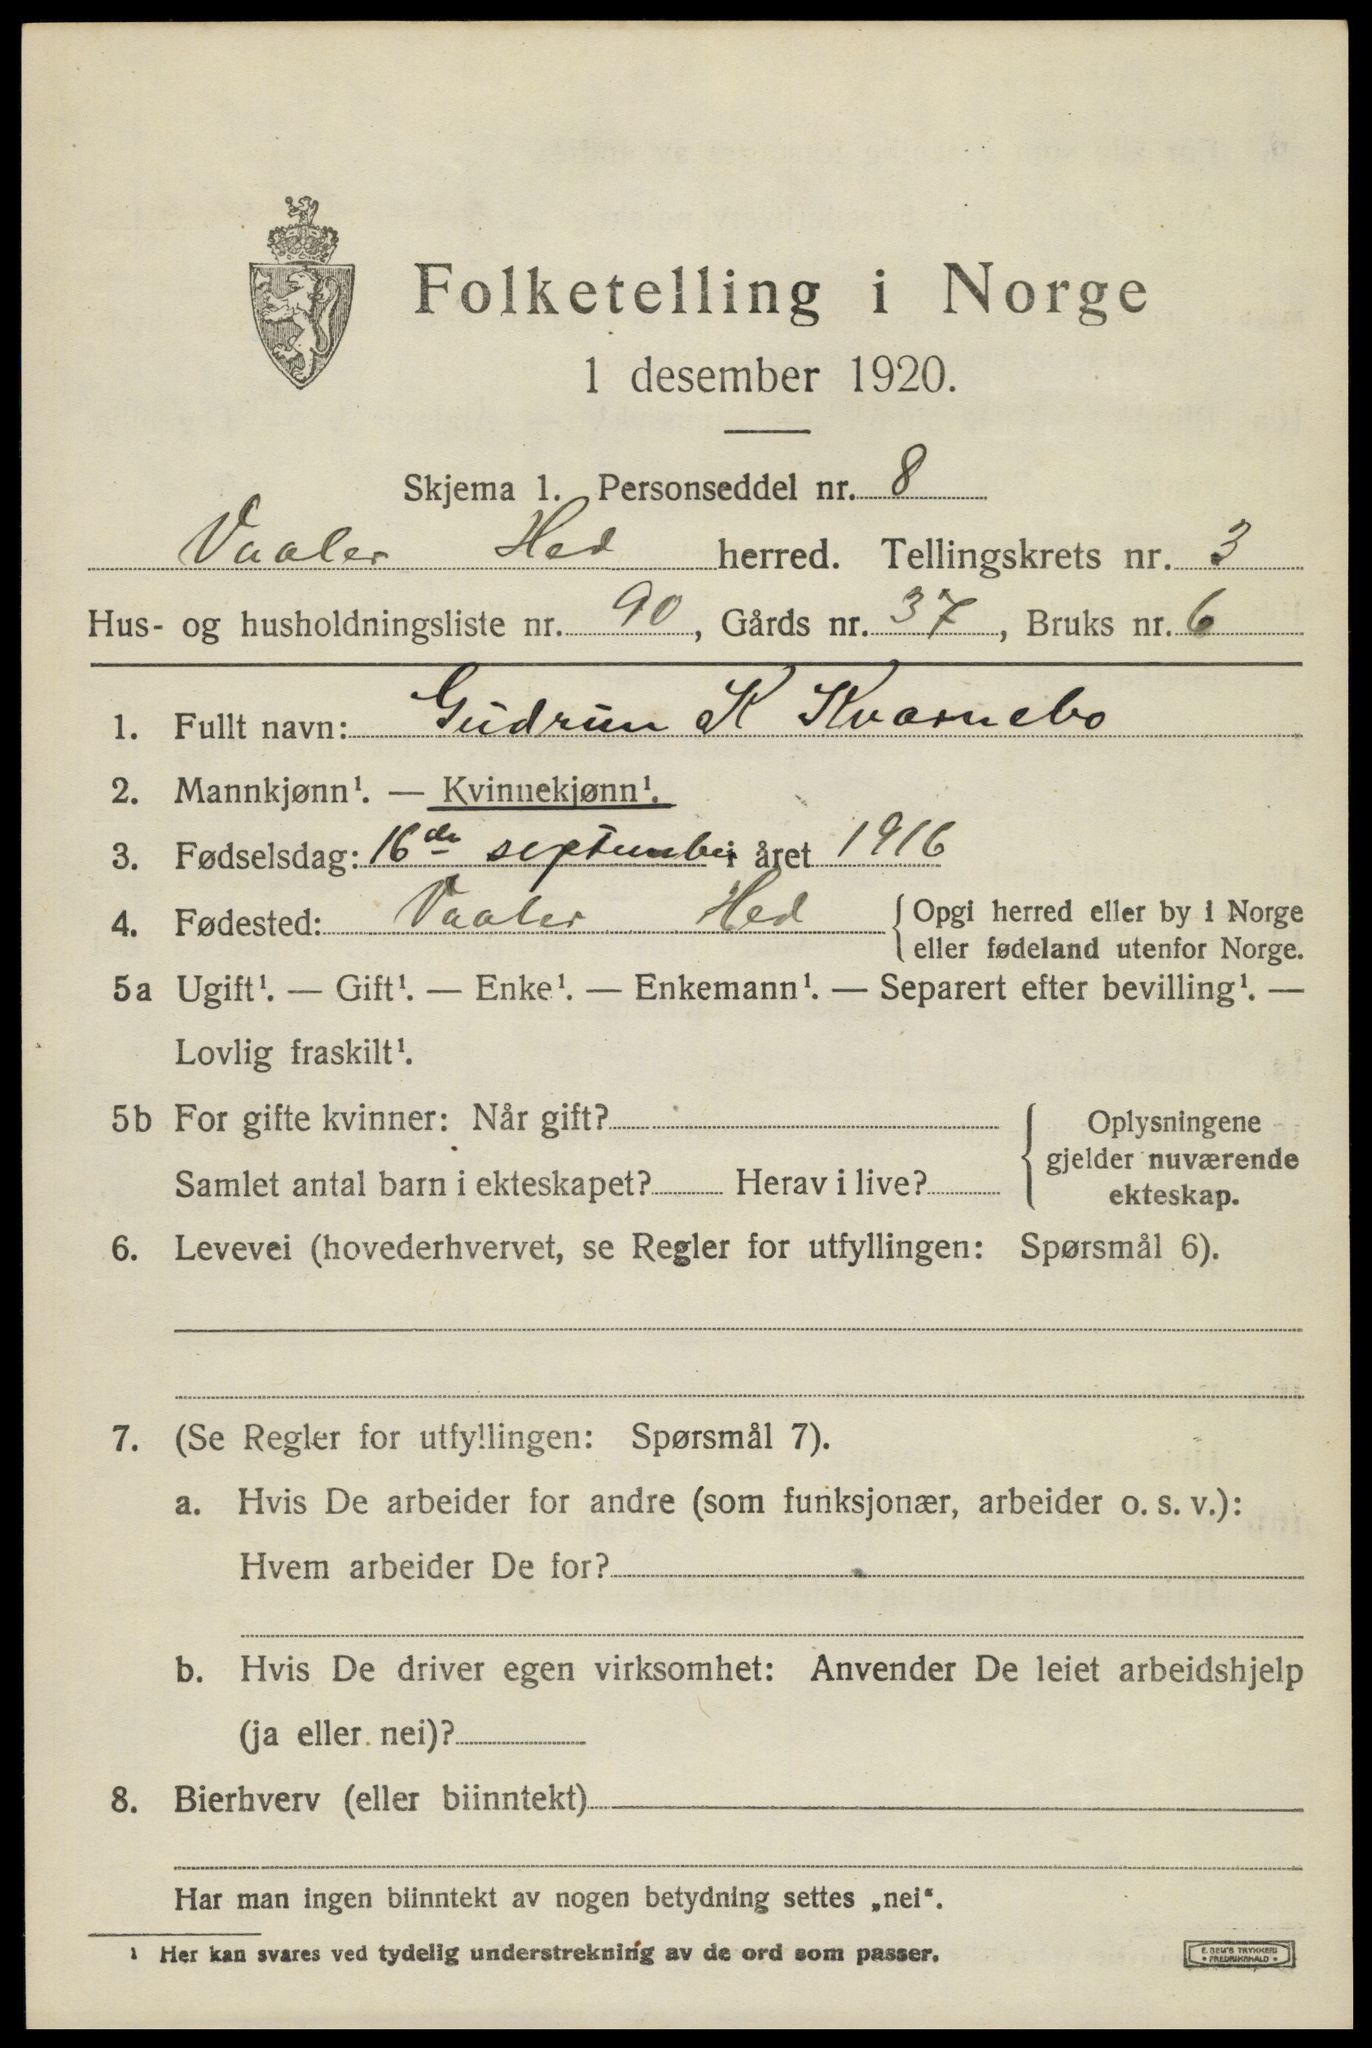 Folketelling i Norge
1 desember 1920.
Skjema 1. Personseddel nr. 8
Vaaler Hed herred. Tellingskrets nr. 3
Hus- og husholdningsliste nr. 90, Gårds nr. 37, Bruks nr. 6
1. Fullt navn: Gudrun K Kvarnebo
2. Mannkjønn¹. — Kvinnekjønn¹.
3. Fødselsdag: 16de september i året 1916
4. Fødested: Vaaler Hed { Opgi herred eller by i Norge
eller fødeland utenfor Norge.
5a Ugift¹. — Gift¹. — Enke¹. — Enkemann¹. — Separert efter bevilling¹. —
Lovlig fraskilt¹.
5b For gifte kvinner: Når gift? { Oplysningene
gjelder nuværende
Samlet antal barn i ekteskapet? Herav i live? ekteskap.
6. Levevei (hovederhvervet, se Regler for utfyllingen: Spørsmål 6).
7. (Se Regler for utfyllingen: Spørsmål 7).
a. Hvis De arbeider for andre (som funksjonær, arbeider o. s. v.):
Hvem arbeider De for?
b. Hvis De driver egen virksomhet: Anvender De leiet arbeidshjelp
(ja eller nei)?
8. Bierhverv (eller biinntekt)
Har man ingen biinntekt av nogen betydning settes „nei“.
¹ Her kan svares ved tydelig understrekning av de ord som passer.
E. SEM'S TRYKKERI
• FREDRIKSHALD •